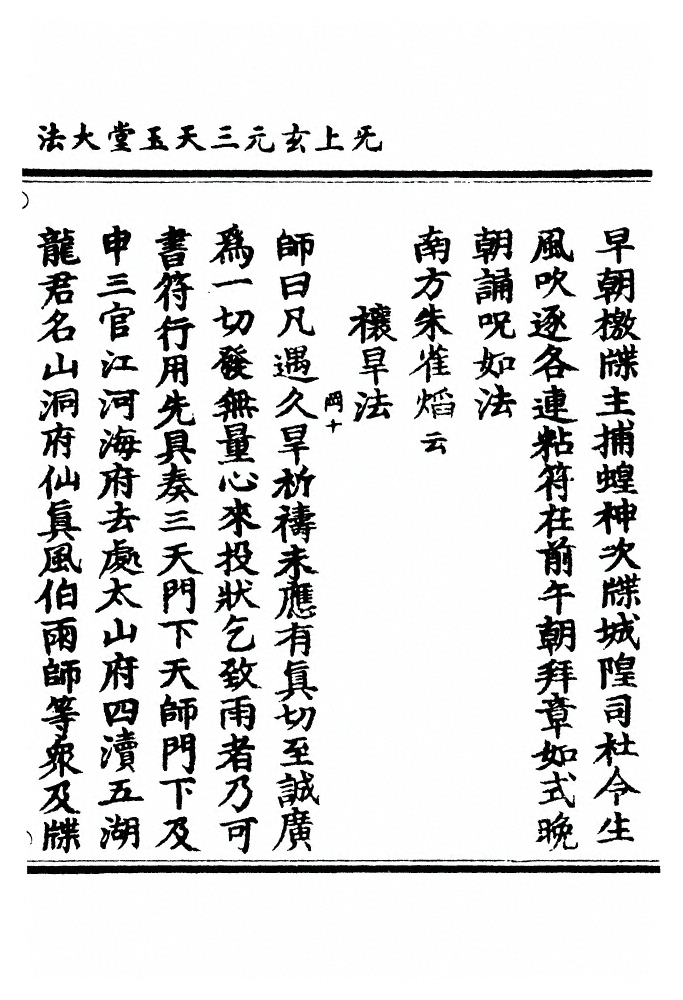 无上玄元三天玉堂大法
早朝檄牒主捕蝗神次牒城隍司社令生
風吹逐各連粘符在前午朝拜章如式晚
朝誦呪如法
南方朱雀熖云
禳旱法
岡十
師曰凡遇久旱祈禱未應有眞切至誠廣
爲一切發無量心來投狀乞致雨者乃可
書符行用先具奏三天門下天師門下及
申三官江河海府去處太山府四瀆五湖
龍君名山洞府仙眞風伯雨師等衆及牒